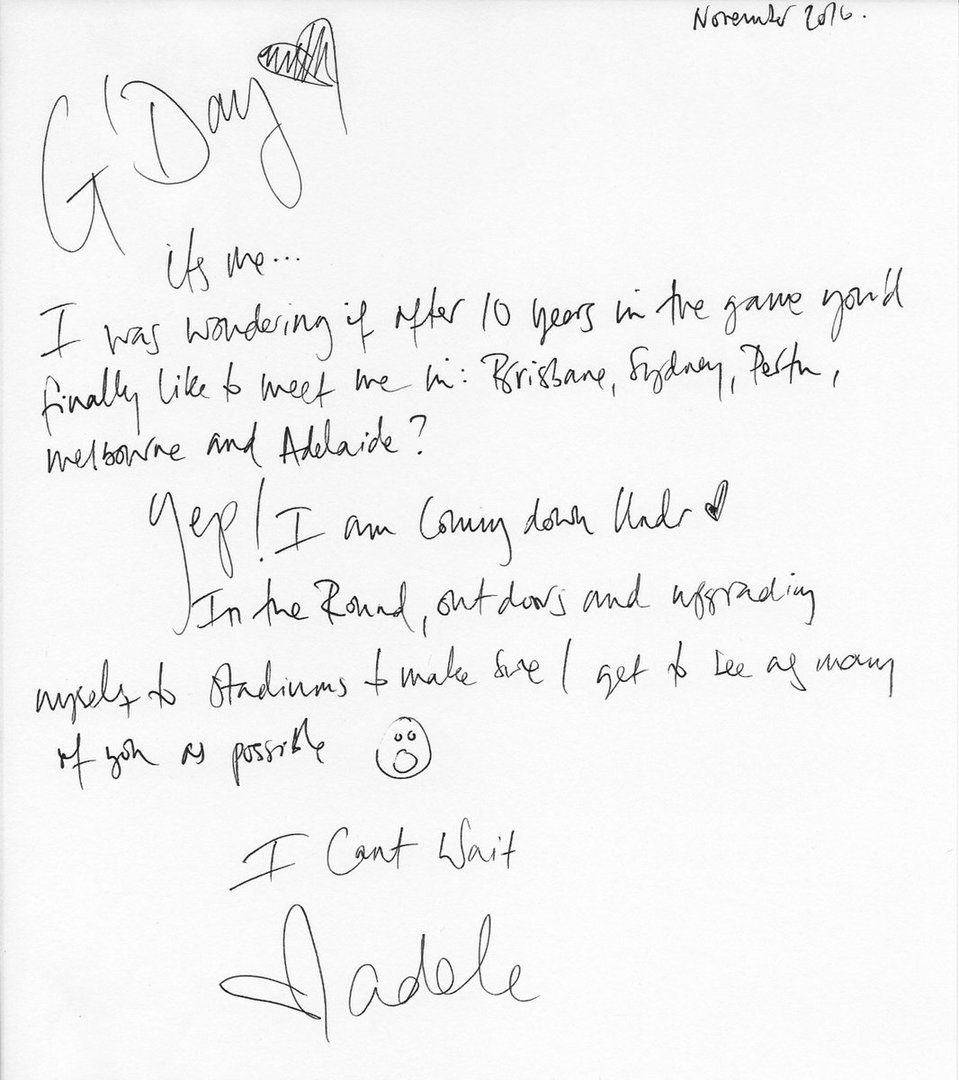 November 2016.
G'Day
its me...
I was wondering if after 10 years in the game you'd
finally like to meet me in: Brisbane, Sydney, Perth,
melbourne and Adelaide?
Yep! I am Coming down Under
In the Round, outdoors and upgrading
myself to Stadiums to make sure I get to see as many
of you as possible
I Cant Wait
adele